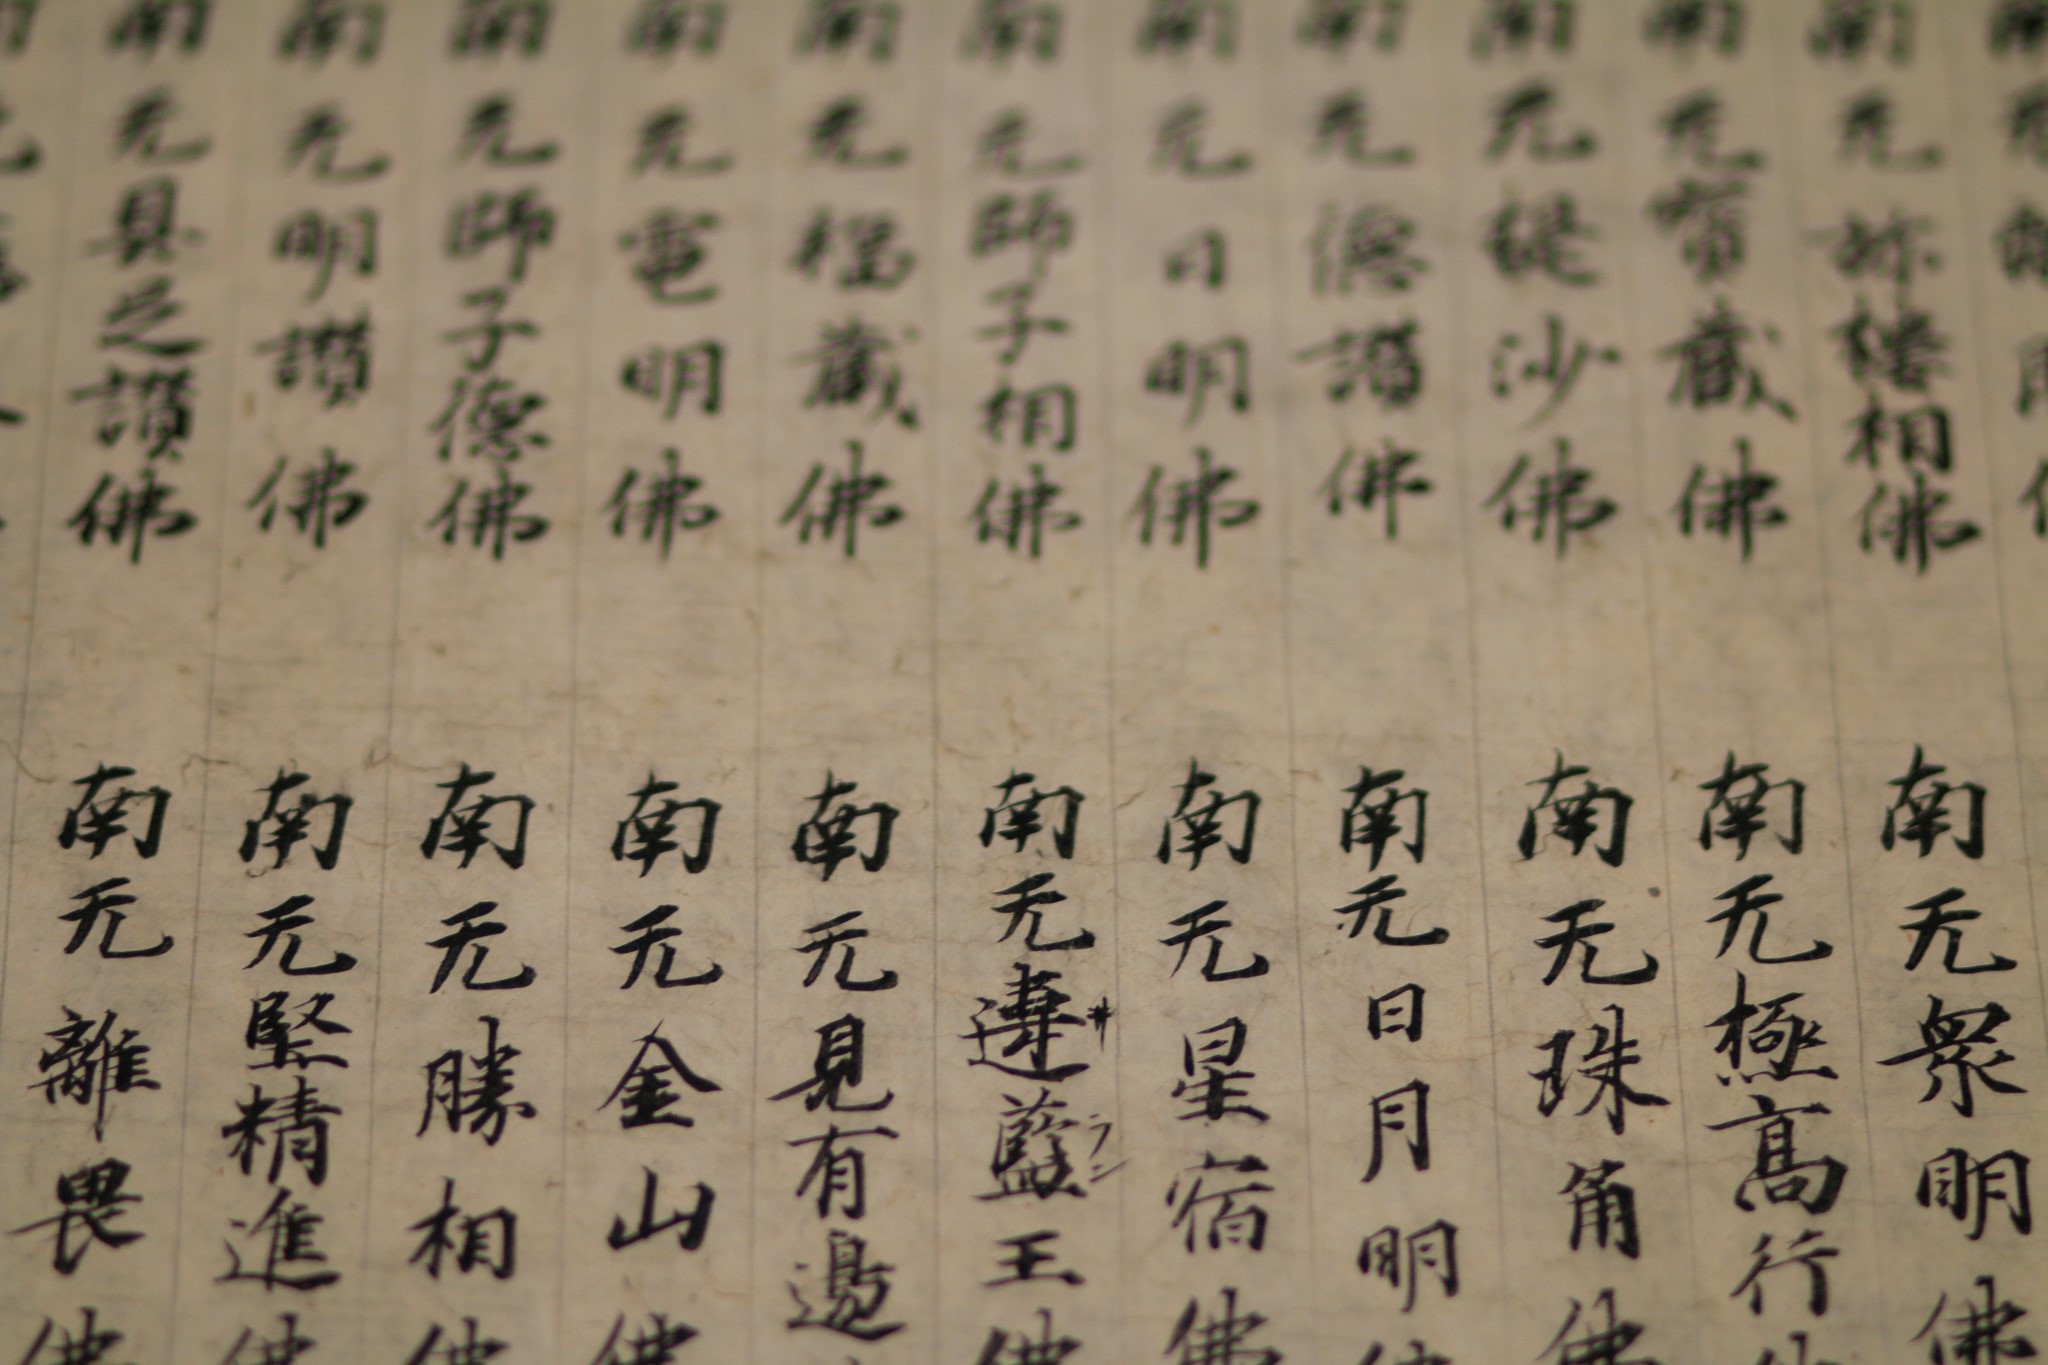 南无弥樓相佛
南无寶藏佛
南无提沙佛
南无德讃佛
南无日明佛
南无師子相佛
南无福藏佛
南无電明佛
南无師子德佛
南无明讃佛
南无具足讃佛
南无衆明佛
南无極高行佛
南无珠角佛
南无日月明佛
南无星宿佛
南无違藍王佛
ヰ
ラン
南无見有邊
南无金山佛
南无勝相佛
南无堅精進佛
南无離畏佛